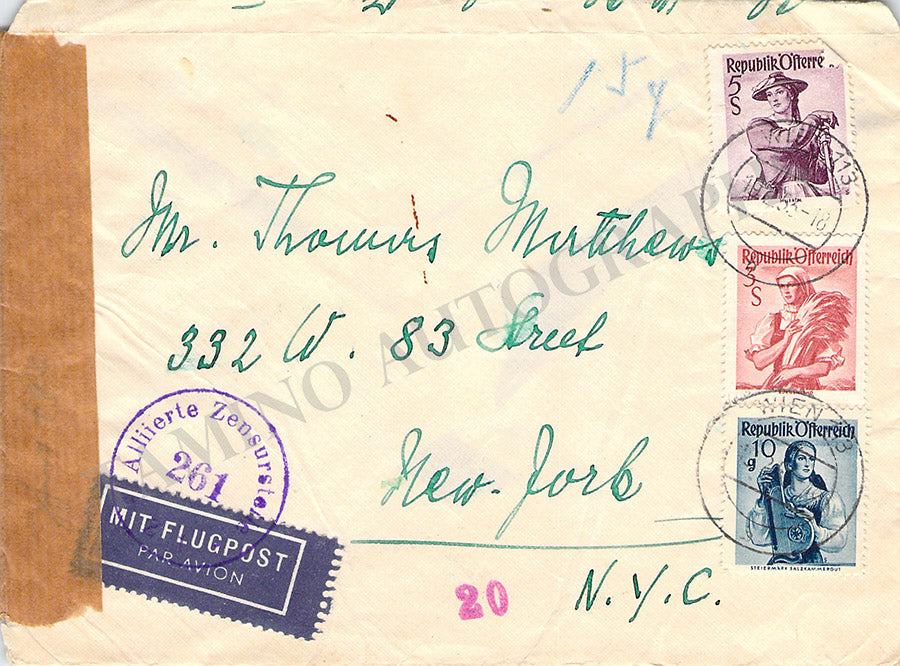 15 g
Republik Österre
5
S
WIEN 113
-18
Mr. Thomas Matthews
Republik Österreich
3
S
332 W. 83 Street
TAMINO AUTOGRAPH
Alliierte Zensurstelle
261
WIEN
Republik Österreich
10
g
New-York
MIT FLUGPOST
PAR AVION
STEIERMARK SALZKAMMERGUT
20
N.Y.C.